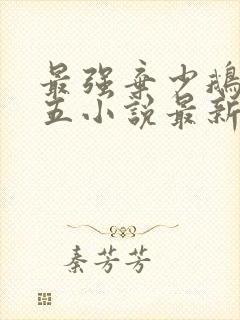 最强弃少鹅
五小说最新
秦芳芳